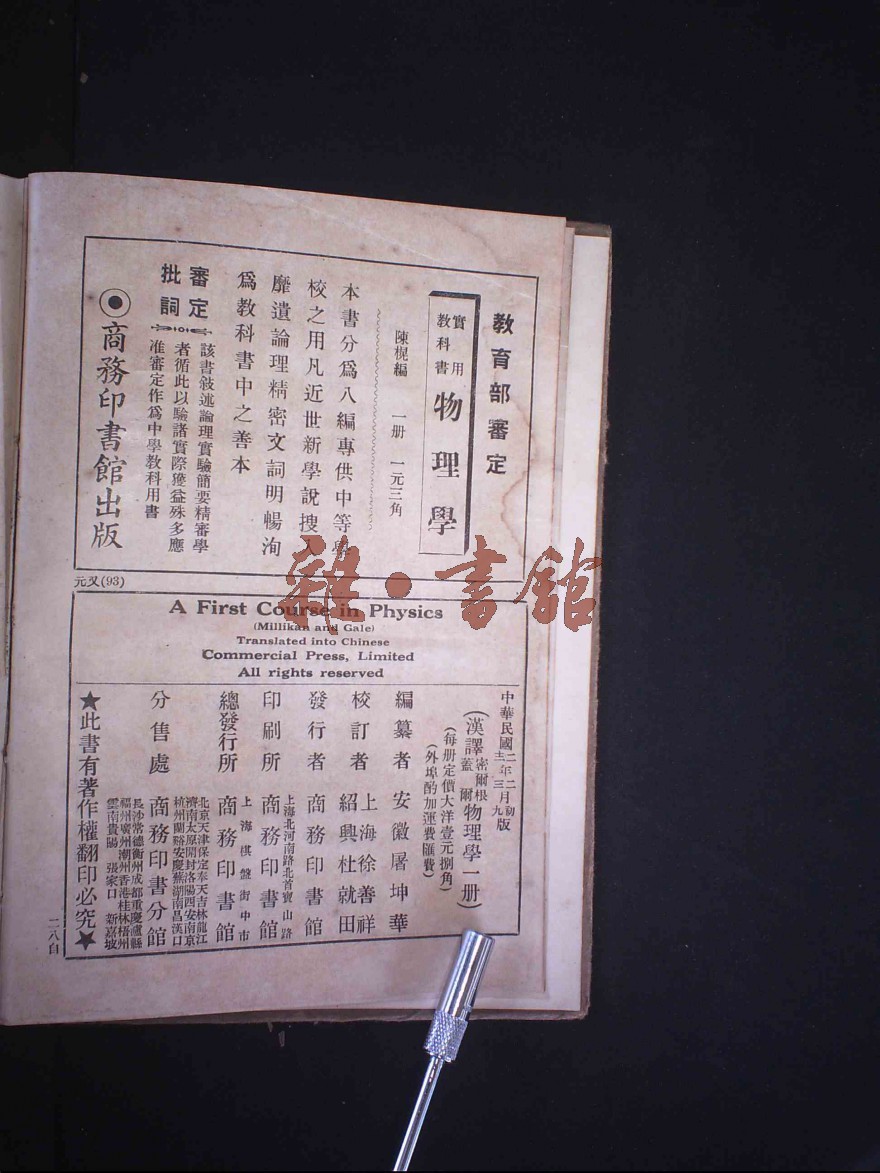 教育部審定
實用教科書
物理學
陳榥編 一册 一元三角
本書分爲八編專供中等學
校之用凡近世新學說搜入
靡遺論理精密文詞明暢洵
爲教科書中之善本
審定批詞
該書敍述論理實驗簡要精審學
者循此以驗諸實際獲益殊多應
准審定作爲中學教科用書
商務印書館出版
元又(93)
雜·書館
A First Course in Physics
(Millikan and Gale)
Translated into Chinese
Commercial Press, Limited
All rights reserved
中華民國二年二月初版
十二年三月九版
(漢譯密爾根蓋爾物理學一册)
(每册定價大洋壹元捌角)
(外埠酌加運費匯費)
編纂者 安徽屠坤華
校訂者 上海徐善祥
紹興杜就田
發行者 商務印書館
印刷所 上海北河南路北首寶山路
商務印書館
總發行所 上海棋盤街中市
商務印書館
分售處 北京天津保定奉天吉林龍江
濟南太原開封洛陽西安南京
杭州蘭谿安慶蕪湖南昌漢口
商務印書分館
長沙常德衡州成都重慶瀘縣
福州廣州潮州香港桂林梧州
雲南貴陽 張家口 新嘉坡
★此書有著作權翻印必究★
二八自